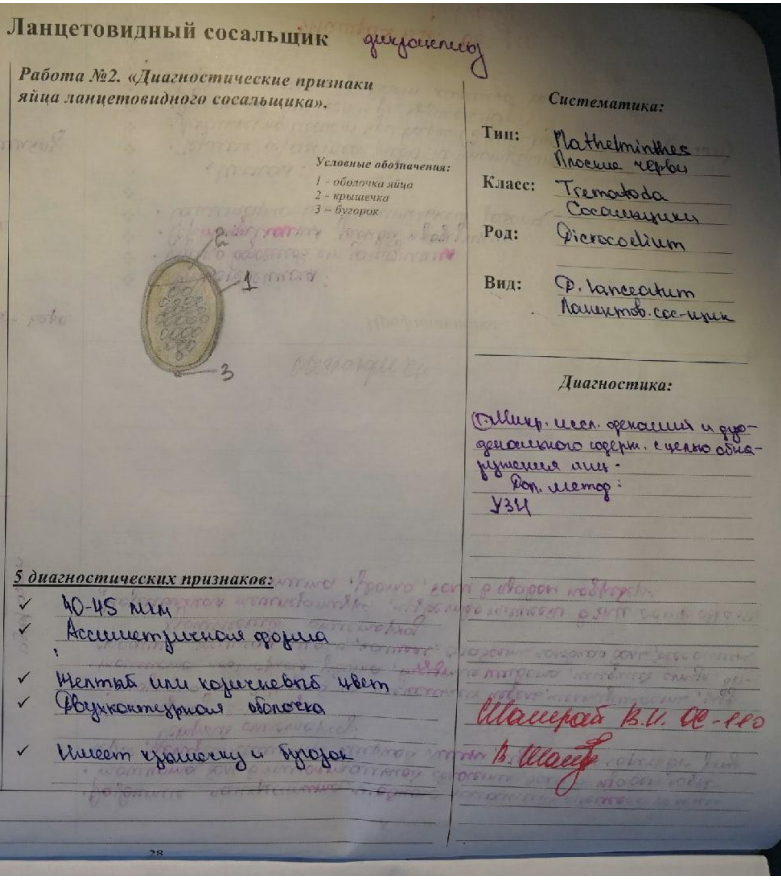 Ланцетовидный сосальщик дикроцелиоз
Работа №2. «Диагностические признаки
яйца ланцетовидного сосальщика».
Условные обозначения:
1 - оболочка яйца
2 - крышечка
3 – бугорок
2
1
3
5 диагностических признаков:
✓ 40-45 мкм
✓ Ассиметричная форма
✓ Желтый или коричневый цвет
✓ Двухконтурная оболочка
✓ Имеет крышечку и бугорок
28
Систематика:
Тип: Plathelminthes
Плоские черви
Класс: Trematoda
Сосальщики
Род: Dicrocoelium
Вид: D. lanceatum
Ланцетов. сос-щик
Диагностика:
①Микр. иссл. фекалий и дуо-
денального содерж. с целью обна-
ружения яиц.
Доп. метод:
УЗИ
В.И. 110
В.